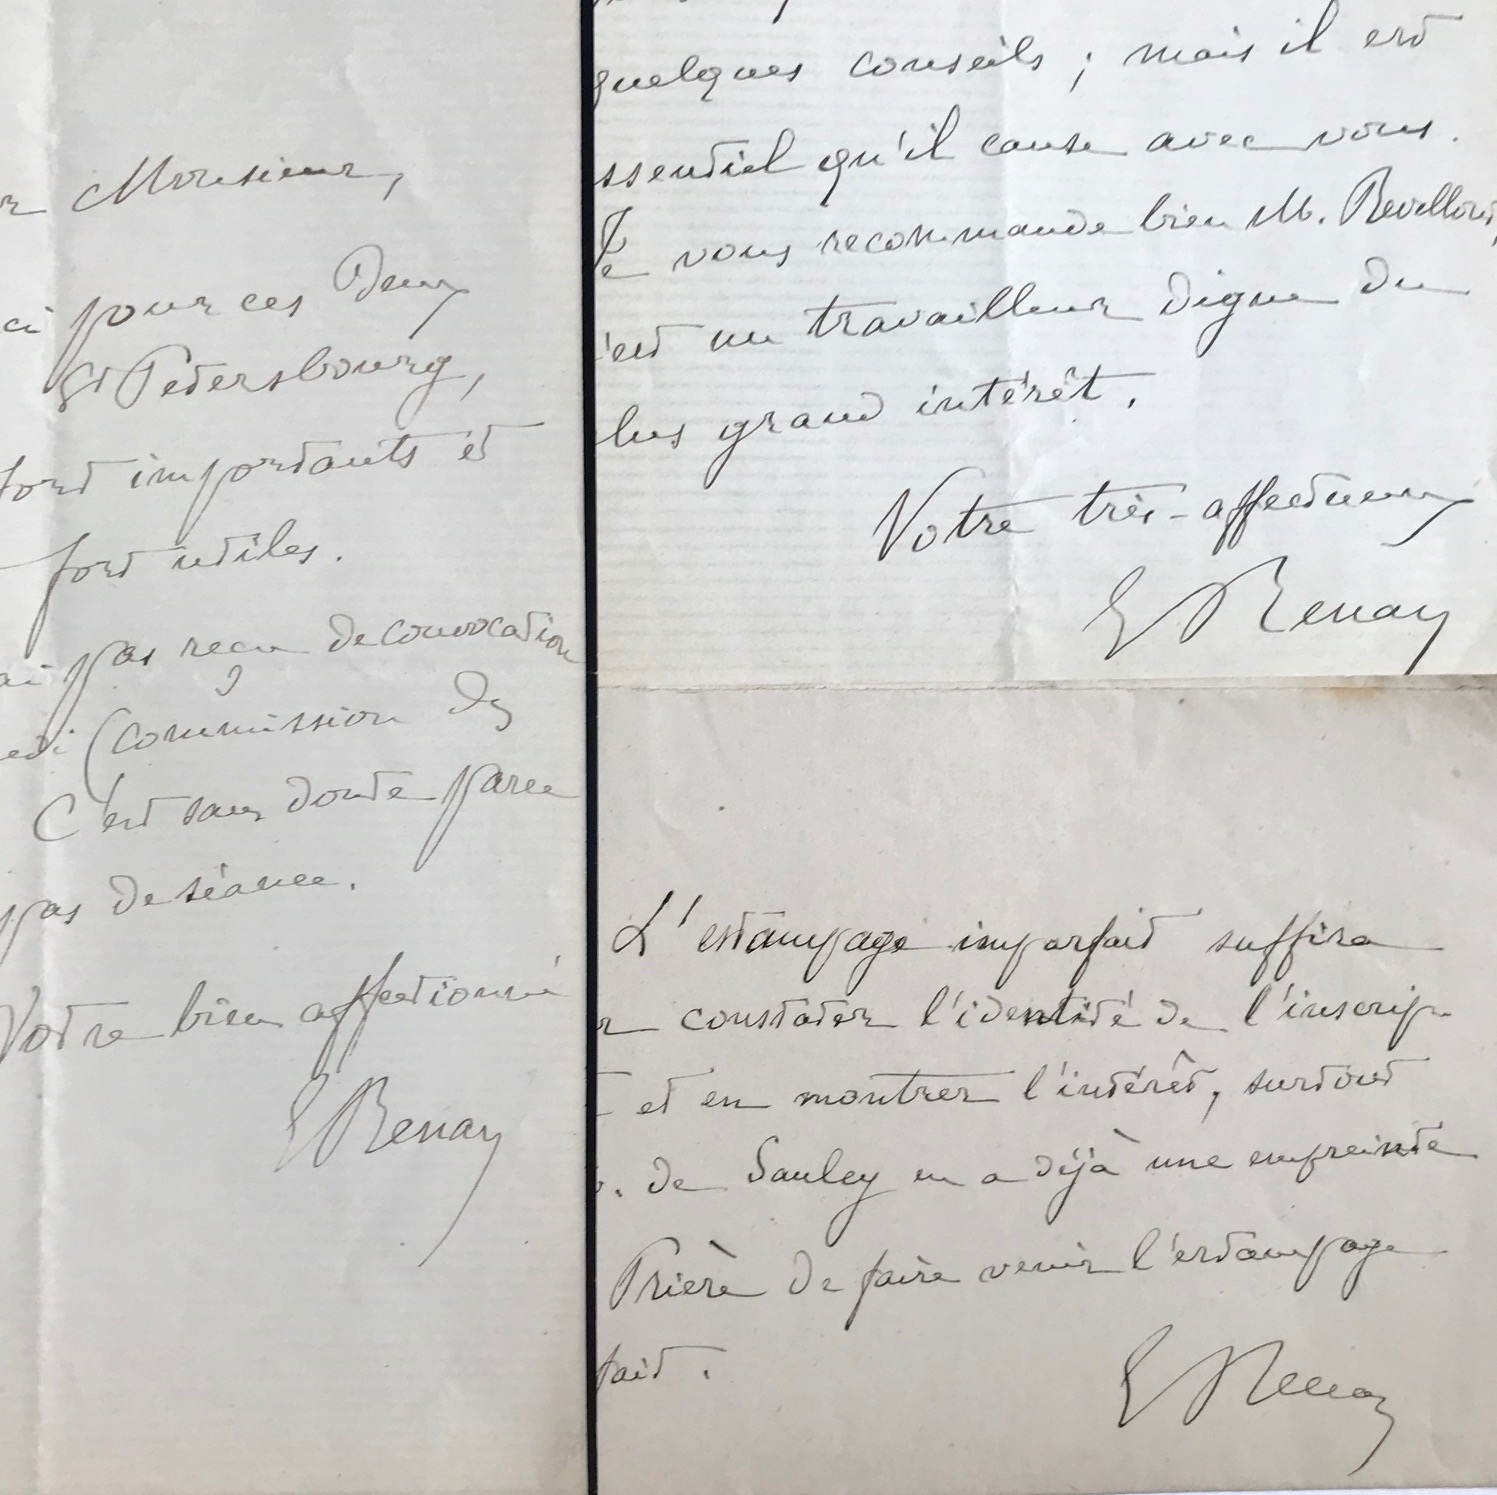 Monsieur,
ci pour ces deux
St Petersbourg,
fort importants et
fort utiles.
ai pas reçu de convocation
edi (commission des
C'est sans doute parce
pas de séance.
Votre bien affectionné
E Renan
quelques conseils ; mais il est
ssentiel qu'il cause avec vous.
Je vous recommande bien M. Revellout,
'est un travailleur digne du
lus grand intérêt.
Votre très-affectueux
E Renan
L'estampage imparfait suffira
r constater l'identité de l'inscrip
et en montrer l'intérêt, surtout
de Saulcy en a déjà une empreinte
Prière de faire venir l'estampage
fait.
E Renan